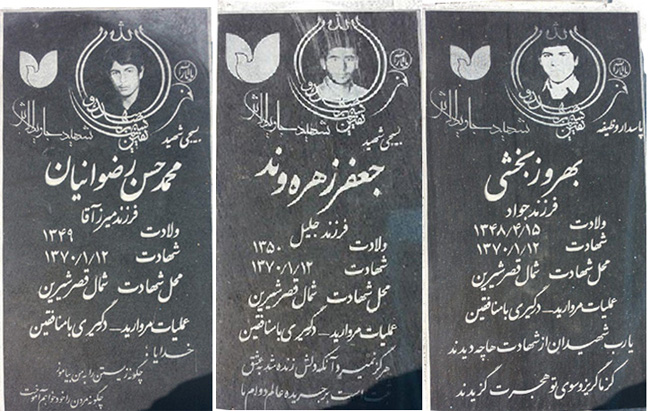 بسیجی شهید
محمد حسن رضوانیان
فرزند میرزآقا
ولادت ۱۳۴۹
شهادت ۱۳۷۰/۱/۱۲
محل شهادت شمال قصرشیرین
عملیات مروارید – درگیری با منافقین
خدایا
چگونه زیستن را به من بیاموز
چگونه مردن را خود خواهم آموخت
بسیجی شهید
جعفر زهره وند
فرزند جلیل
ولادت ۱۳۵۰
شهادت ۱۳۷۰/۱/۱۲
محل شهادت شمال قصرشیرین
عملیات مروارید – درگیری با منافقین
هرگز نمیرد آنکه دلش زنده شد به عشق
ثبت است بر جریده عالم دوام ما
پاسدار وظیفه
بهروز بخشی
فرزند جواد
ولادت ۱۳۴۸/۴/۱۵
شهادت ۱۳۷۰/۱/۱۲
محل شهادت شمال قصرشیرین
عملیات مروارید – درگیری با منافقین
یارب شهیدان از شهادت ها چه دیدند
کز ما گریز و سوی تو هجرت گزیدند